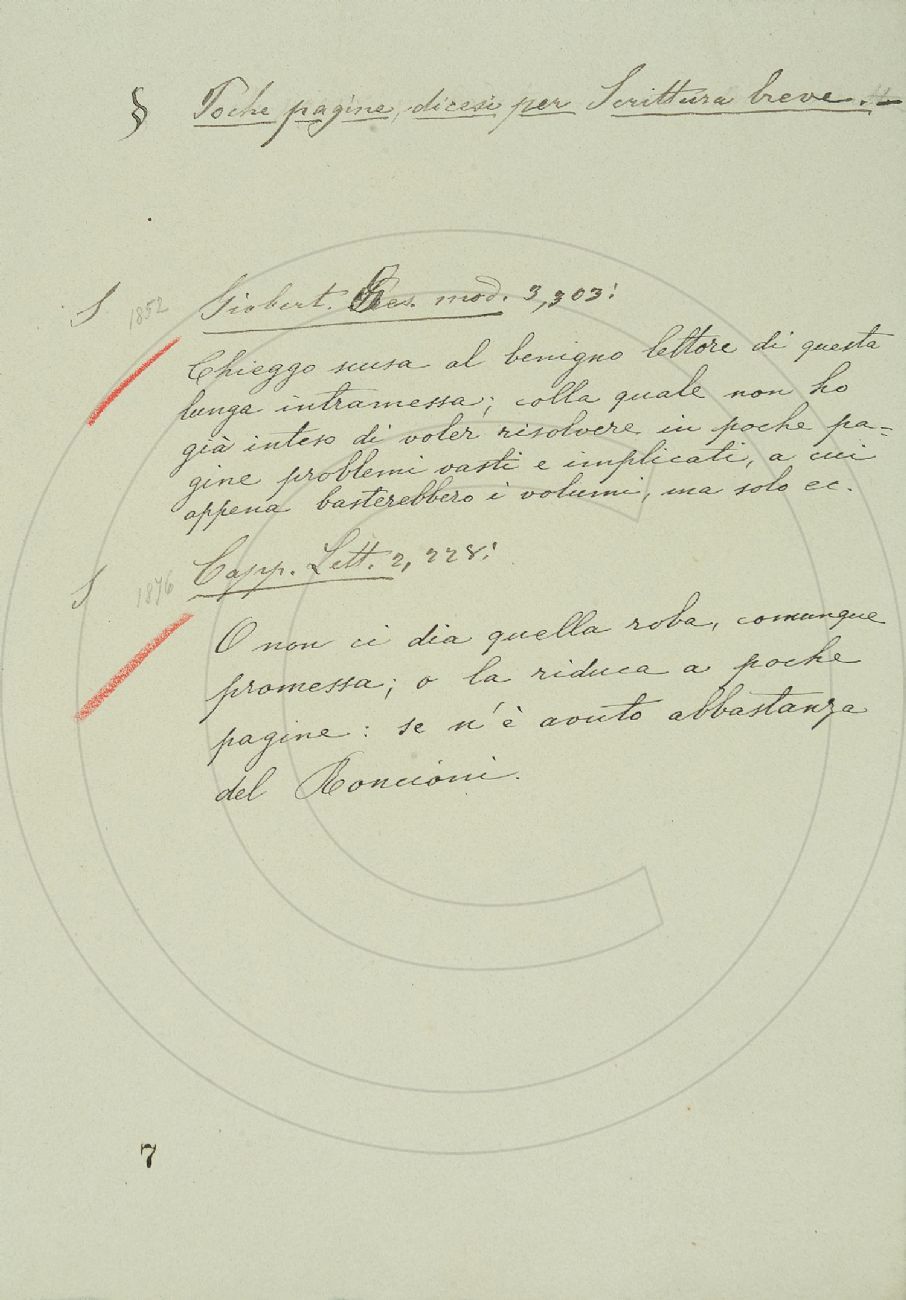 § Poche pagine, dicesi per Scrittura breve. –
S 1852 Giobert. Ges. mod. 3,303:
Chieggo scusa al benigno lettore di questa
lunga intramessa; colla quale non ho
già inteso di voler risolvere in poche pa=
gine problemi vasti e implicati, a cui
appena basterebbero i volumi, ma solo ec.
S 1876 Capp. Lett. 2, 228:
O non ci dia quella roba, comunque
promessa; o la riduca a poche
pagine: se n'è avuto abbastanza
del Roncioni.
7